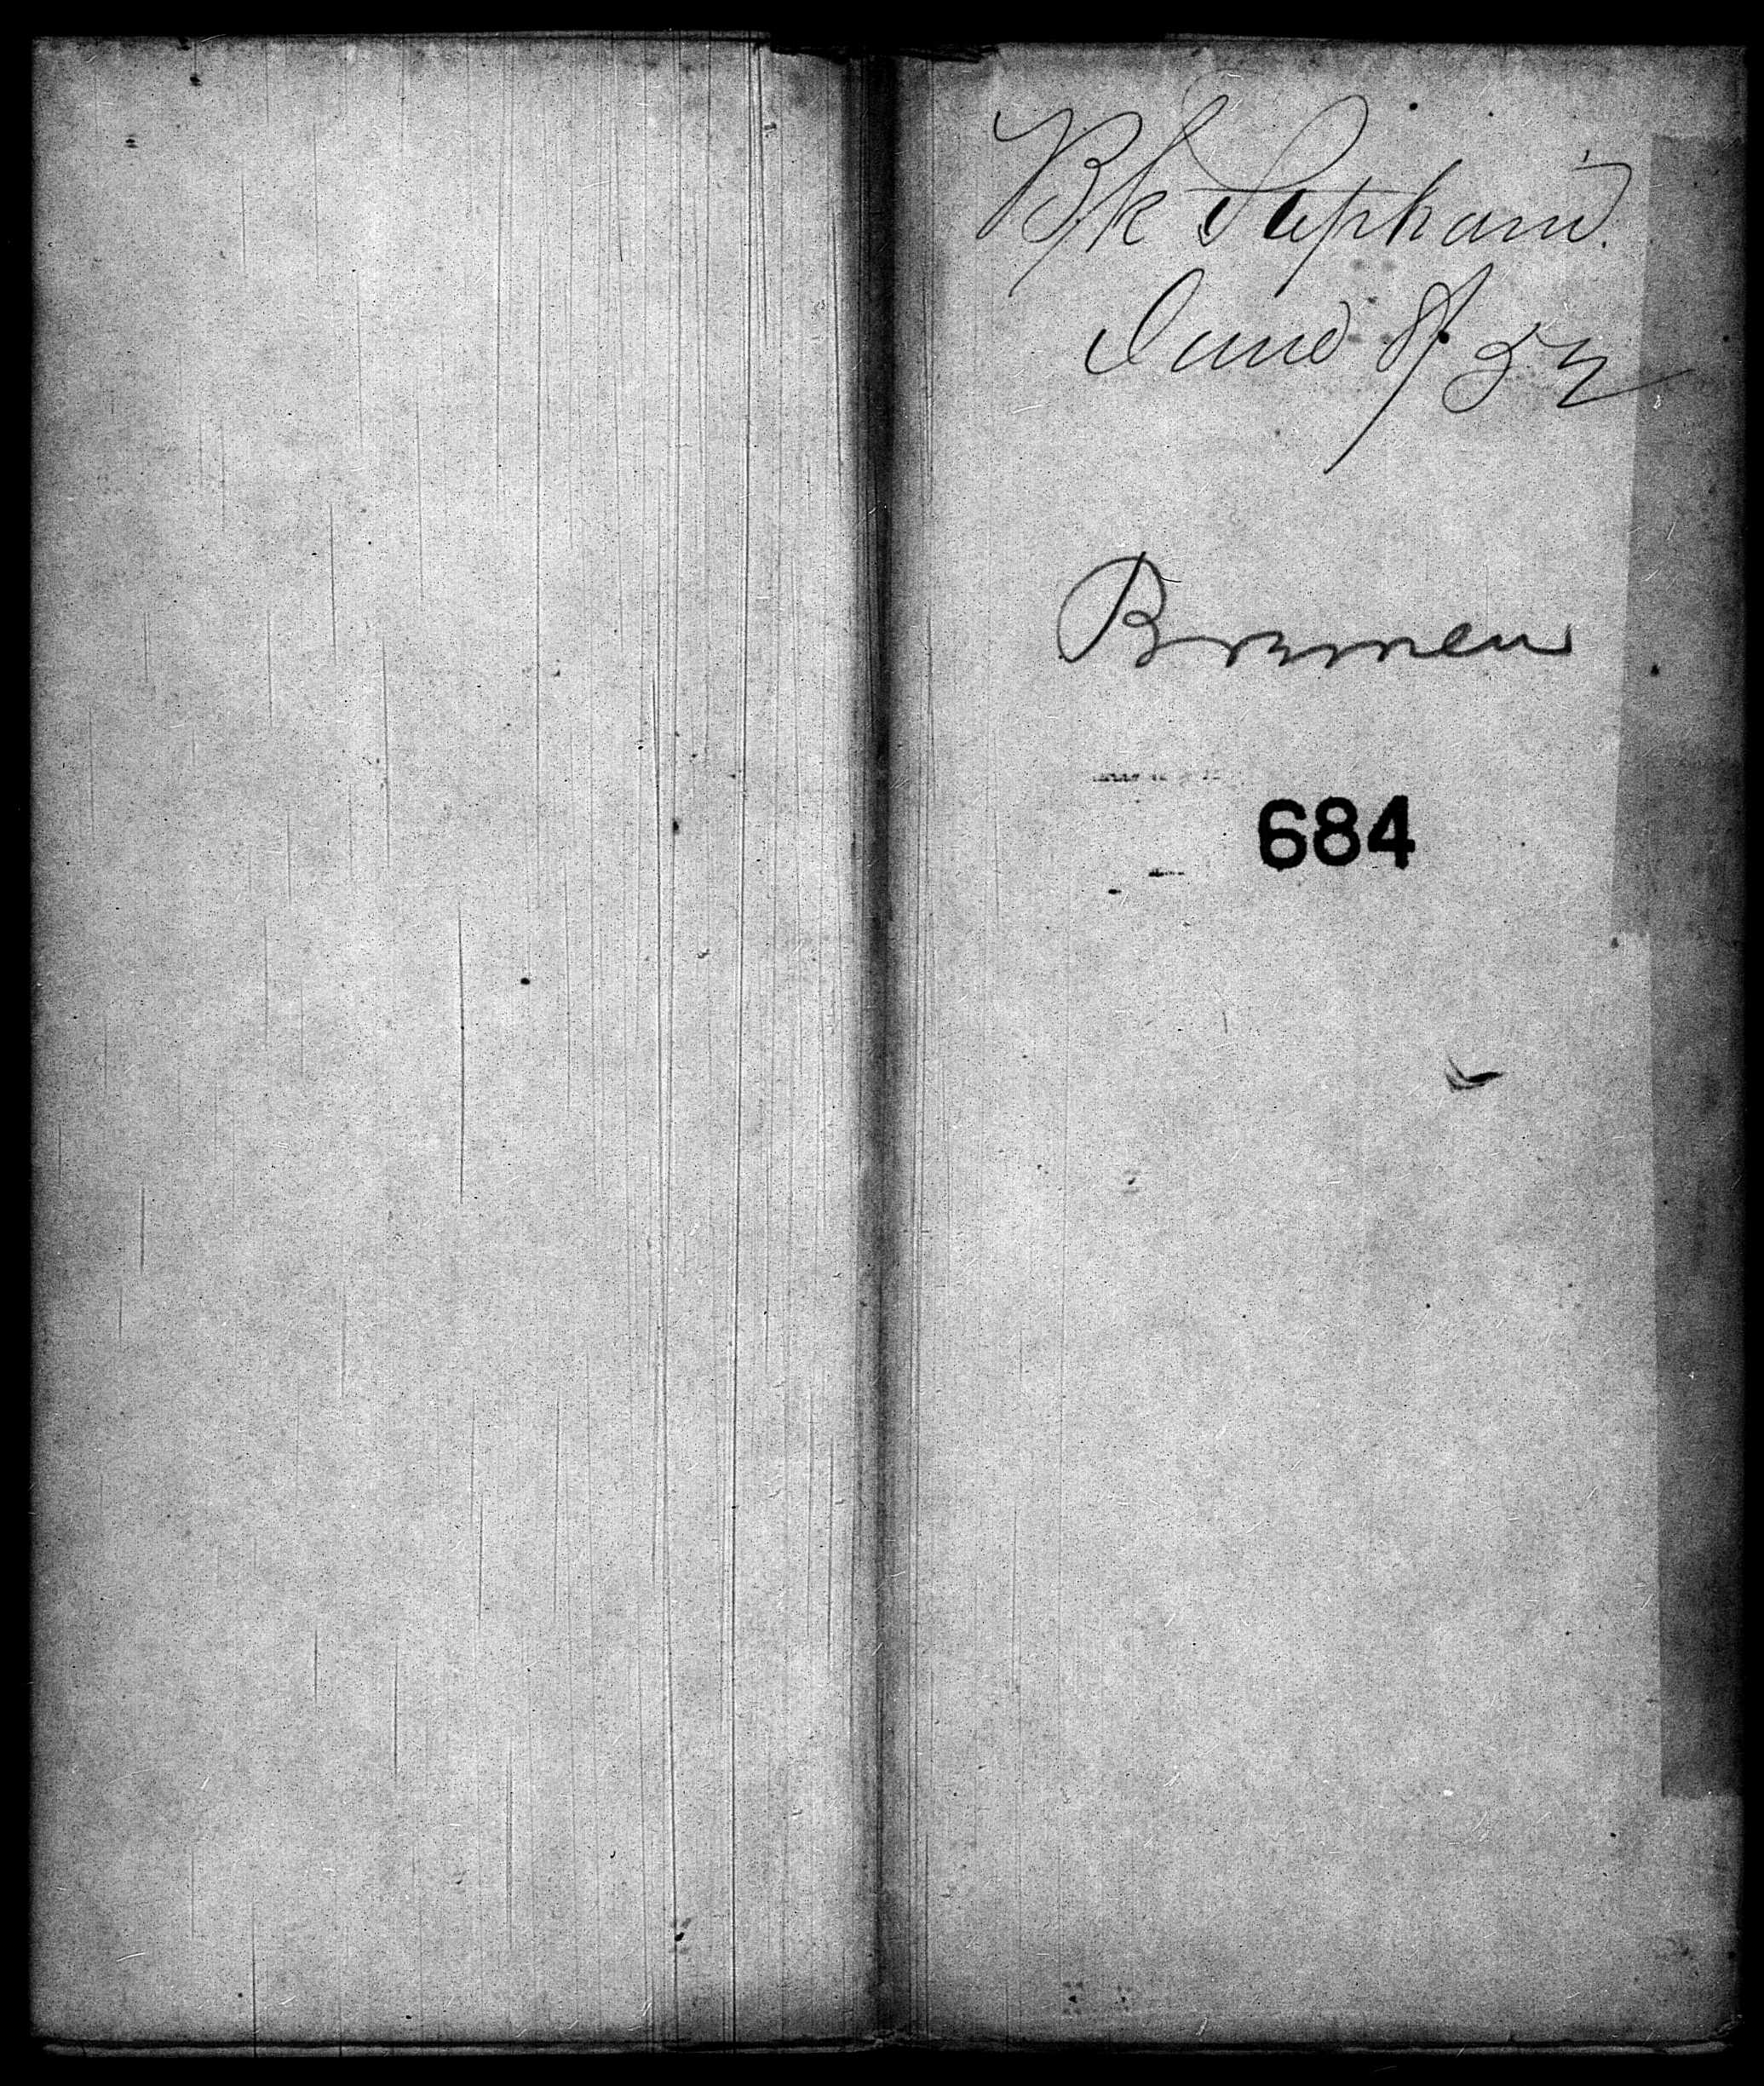 Bk Stephani
June 8/52
Bremen
684